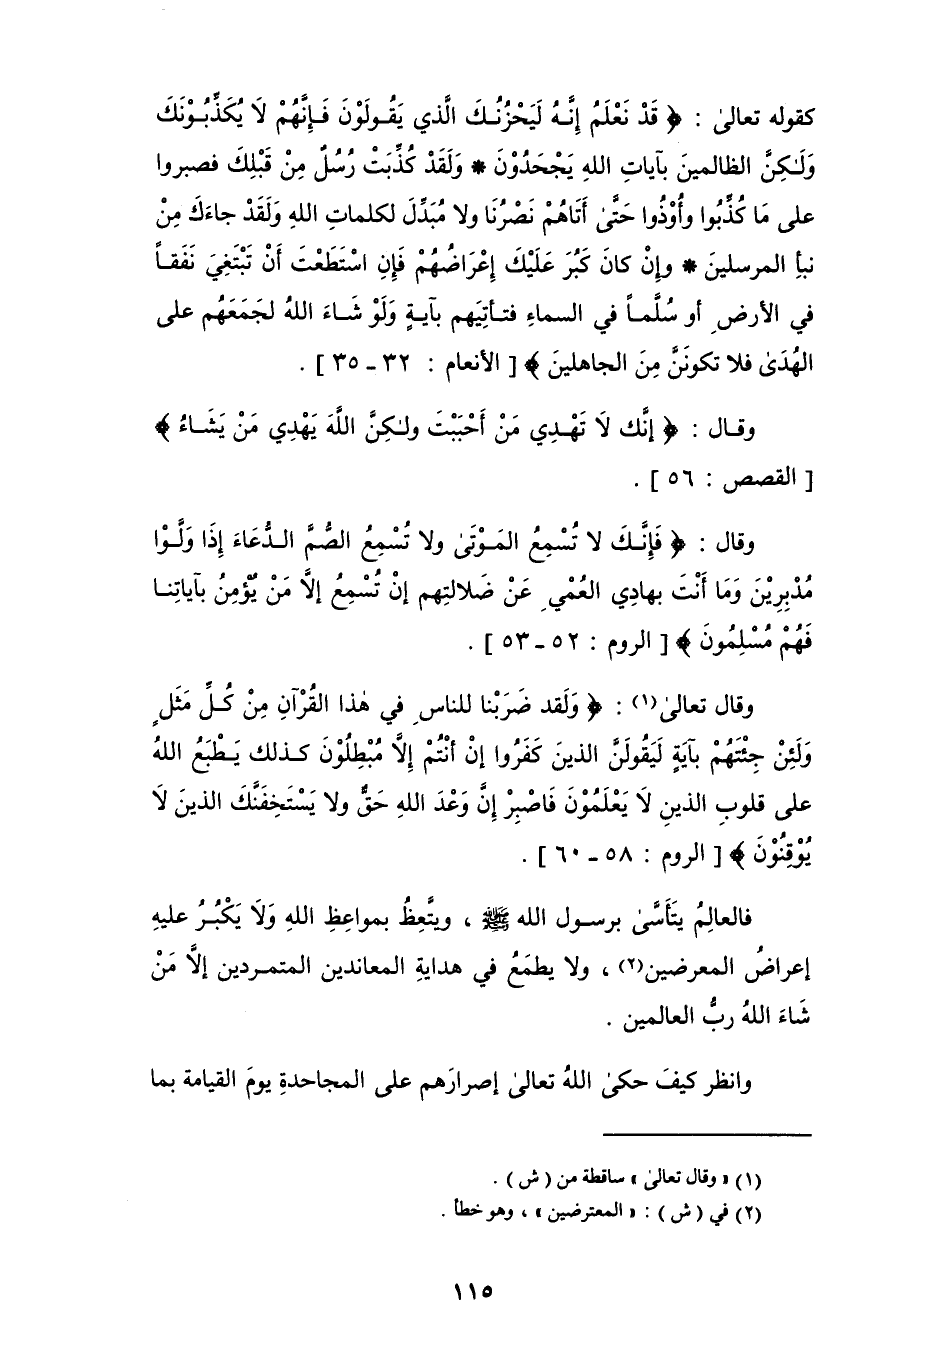 كقوله تعالىٰ : ﴿ قَدْ نَعْلَمُ إِنَّهُ لَيَحْزُنُكَ الَّذي يَقُولَوْنَ فَإِنَّهُمْ لَا يُكَذِّبُوْنَكَ
وَلَٰكِنَّ الظالمينَ بآياتِ اللهِ يَجْحَدُوْنَ * وَلَقَدْ كُذِّبَتْ رُسُلٌ مِنْ قَبْلِكَ فصبروا
على مَا كُذِّبُوا وأُوْذُوا حَتَّىٰ أَتَاهُمْ نَصْرُنَا ولا مُبَدِّلَ لكلماتِ اللهِ وَلَقَدْ جاءَكَ مِنْ
نبأِ المرسلينَ * وإِنْ كانَ كَبُرَ عَلَيْكَ إِعْرَاضُهُمْ فَإِنِ اسْتَطَعْتَ أَنْ تَبْتَغِيَ نَفَقاً
في الأرضِ أو سُلَّماً في السماءِ فتأتِيَهم بآيةٍ وَلَوْ شَاءَ اللهُ لجَمَعَهُم على
الهُدَىٰ فلا تكونَنَّ مِنَ الجاهلينَ ﴾ [ الأنعام : ٣٢ ـ ٣٥ ] .
وقال : ﴿ إِنَّك لَا تَهْدِي مَنْ أَحْبَبْتَ ولٰكِنَّ اللَّهَ يَهْدِي مَنْ يَشَاءُ ﴾
[ القصص : ٥٦ ] .
وقال : ﴿ فَإِنَّكَ لا تُسْمِعُ المَوْتَىٰ ولا تُسْمِعُ الصُّمَّ الدُّعَاءَ إِذَا وَلَّوْا
مُدْبِرِيْنَ وَمَا أَنْتَ بهادِي العُمْيِ عَنْ ضَلالتِهم إنْ تُسْمِعُ إلَّا مَنْ يُؤْمِنُ بآياتِنا
فَهُمْ مُسْلِمُونَ ﴾ [ الروم : ٥٢ ـ ٥٣ ] .
وقال تعالىٰ(١) : ﴿ وَلَقد ضَرَبْنا للناسِ في هٰذا القُرْآنِ مِنْ كُلِّ مَثَلٍ
وَلَئِنْ جِئْتَهُمْ بآيَةٍ لَيَقُولَنَّ الذينَ كَفَرُوا إنْ أنْتُمْ إلَّا مُبْطِلُوْنَ كذلك يَطْبَعُ اللهُ
على قلوبِ الذينِ لَا يَعْلَمُوْنَ فَاصْبِرْ إِنَّ وَعْدَ اللهِ حَقٌّ ولا يَسْتَخِفَّنَّكَ الذينَ لَا
يُوْقِنُوْنَ ﴾ [ الروم : ٥٨ ـ ٦٠ ] .
فالعالِمُ يتَأَسَّىٰ برسول الله ﷺ ، ويتَّعِظُ بمواعِظِ اللهِ وَلَا يَكْبُرُ عليهِ
إعراضُ المعرضين(٢) ، ولا يطمَعُ في هدايةِ المعاندين المتمردين إلَّا مَنْ
شَاءَ اللهُ ربُّ العالمين .
وانظر كيفَ حكىٰ اللهُ تعالىٰ إصرارَهم على المجاحدةِ يومَ القيامة بما
(١) « وقال تعالىٰ » ساقطة من ( ش ) .
(٢) في ( ش ) : « المعترضين » ، وهو خطأ .
١١٥